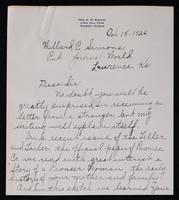 MRS. S. W. BURNEY
LONG HILL FARM
BURNEY, KANSAS
Oct. 18, 1926
Willard C. Simons
Ent. Journal-World
Lawrence, Ks
Dear Sir:
No doubt you will be
greatly surprised in receiving a
letter from a stranger but my
writing will explain itself.
In a recent issue of the Tiller
and Toiler, the official paper of Pawnee
Co. we read with great interest a
Story of a Pioneer Woman, the early
history of your mother and family.
And in this sketch we learned your